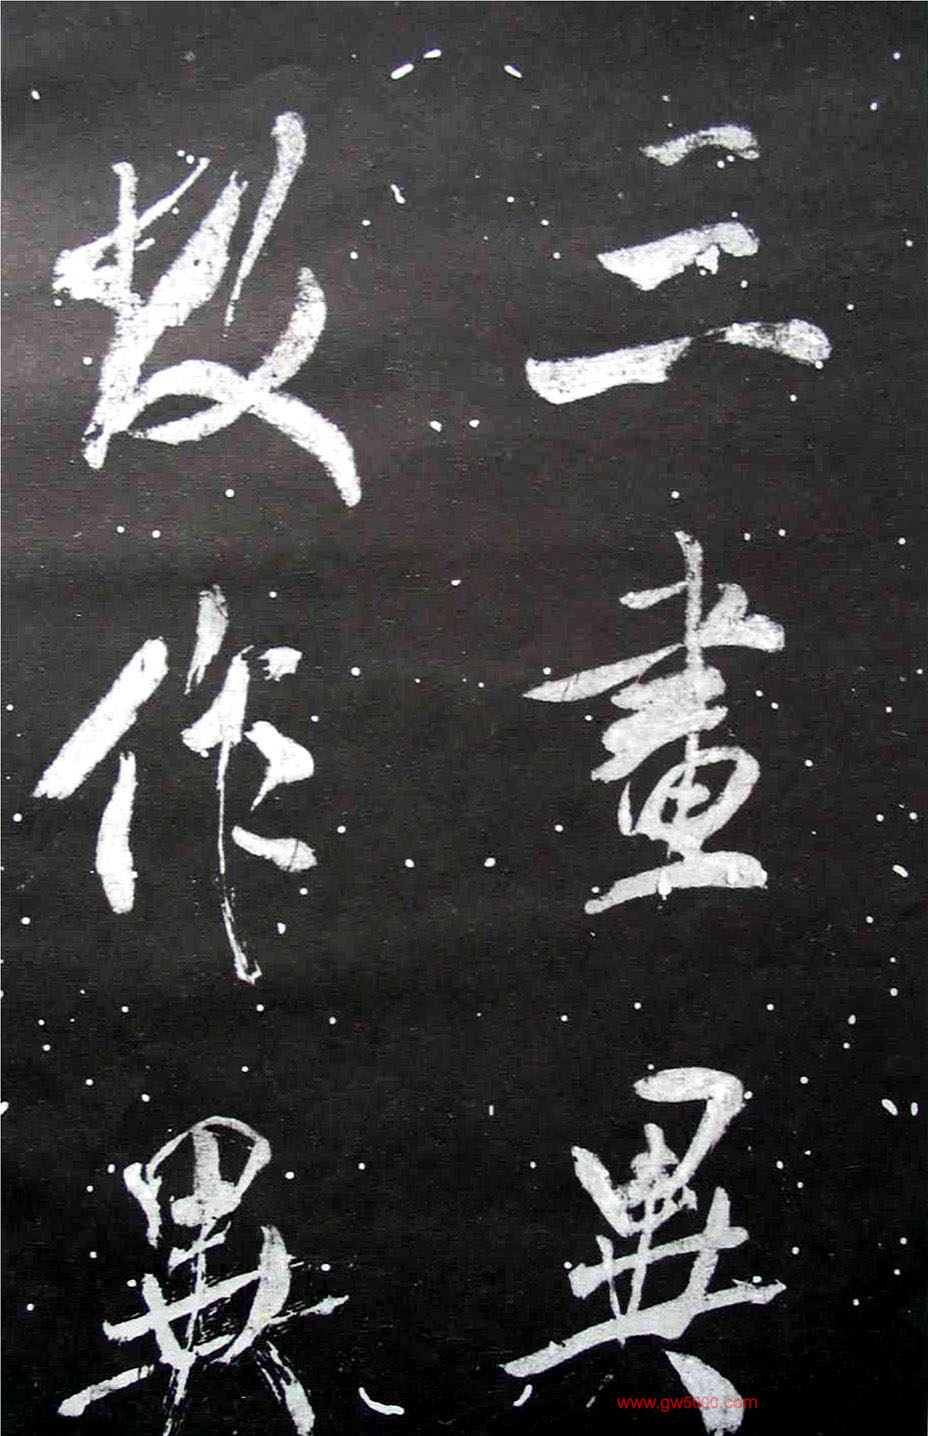 三畫異
故作異
www.gw5000.com